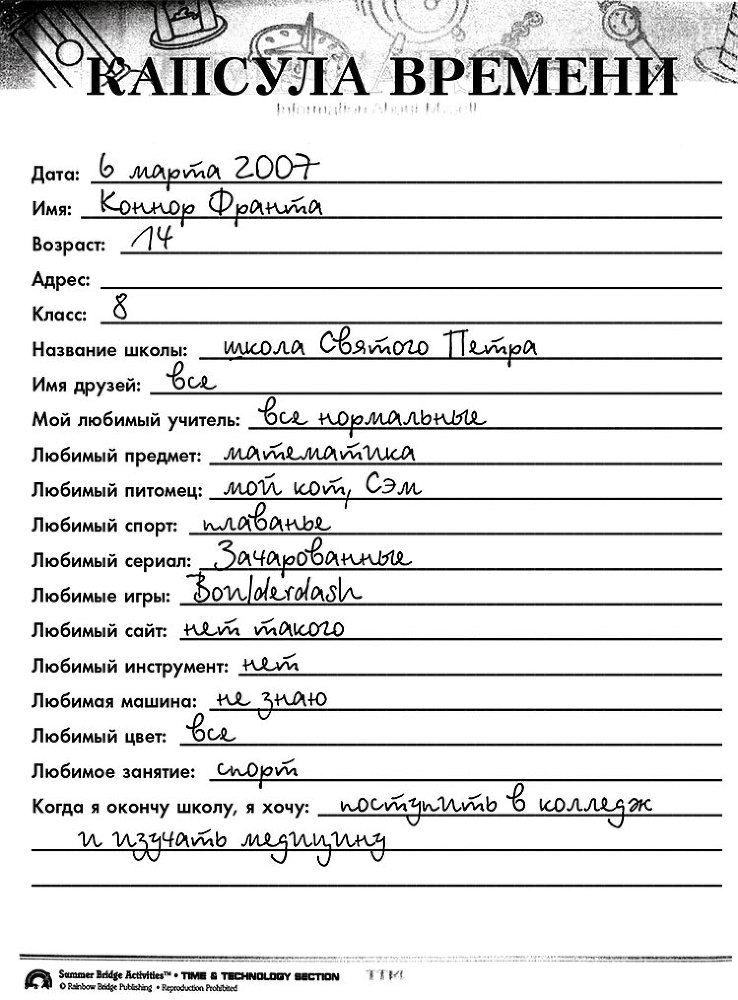 КАПСУЛА ВРЕМЕНИ
Information About Myself
Дата: 6 марта 2007
Имя: Коннор Франта
Возраст: 14
Адрес:
Класс: 8
Название школы: школа Святого Петра
Имя друзей: все
Мой любимый учитель: все нормальные
Любимый предмет: математика
Любимый питомец: мой кот, Сэм
Любимый спорт: плаванье
Любимый сериал: Зачарованные
Любимые игры: Boulderdash
Любимый сайт: нет такого
Любимый инструмент: нет
Любимая машина: не знаю
Любимый цвет: все
Любимое занятие: спорт
Когда я окончу школу, я хочу: поступить в колледж
и изучать медицину
Summer Bridge Activities™ • TIME & TECHNOLOGY SECTION
© Rainbow Bridge Publishing • Reproduction Prohibited